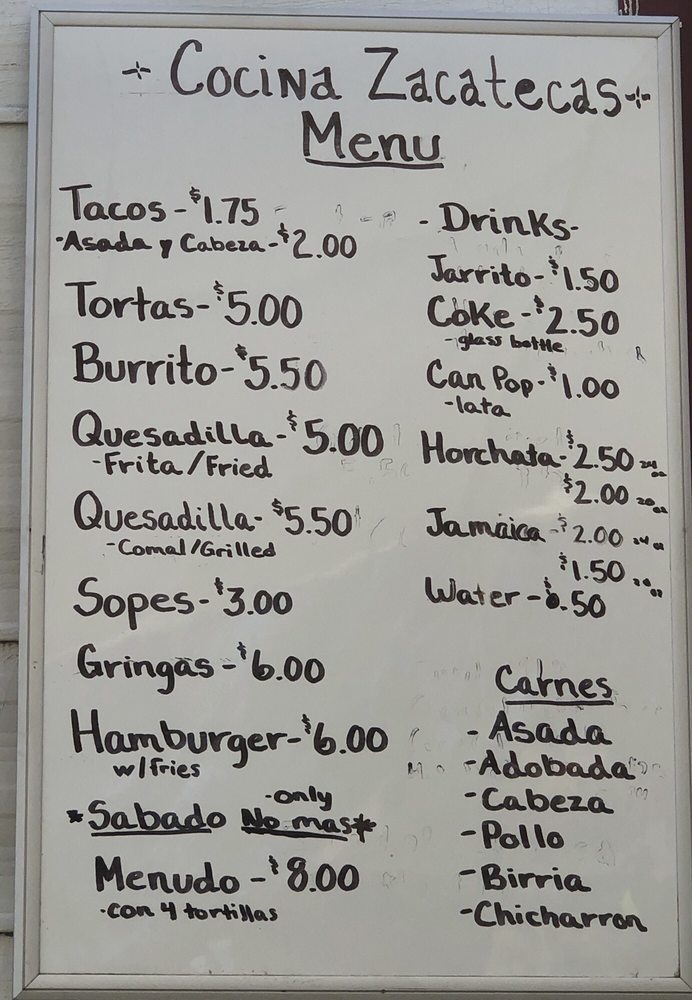 Cocina Zacatecas
Menu
Tacos - $1.75
- Asada y Cabeza - $2.00
Tortas - $5.00
Burrito - $5.50
Quesadilla - $5.00
- Frita / Fried
Quesadilla - $5.50
- Comal / Grilled
Sopes - $3.00
Gringas - $6.00
Hamburger - $6.00
w/ fries
- only
*Sabado No mas*
Menudo - $8.00
- con 4 tortillas
- Drinks -
Jarrito - $1.50
Coke - $2.50
- glass bottle
Can Pop - $1.00
- lata
Horchata - $2.50
$2.00
Jamaica - $2.00
$1.50
Water - $.50
Carnes
- Asada
- Adobada
- Cabeza
- Pollo
- Birria
- Chicharron